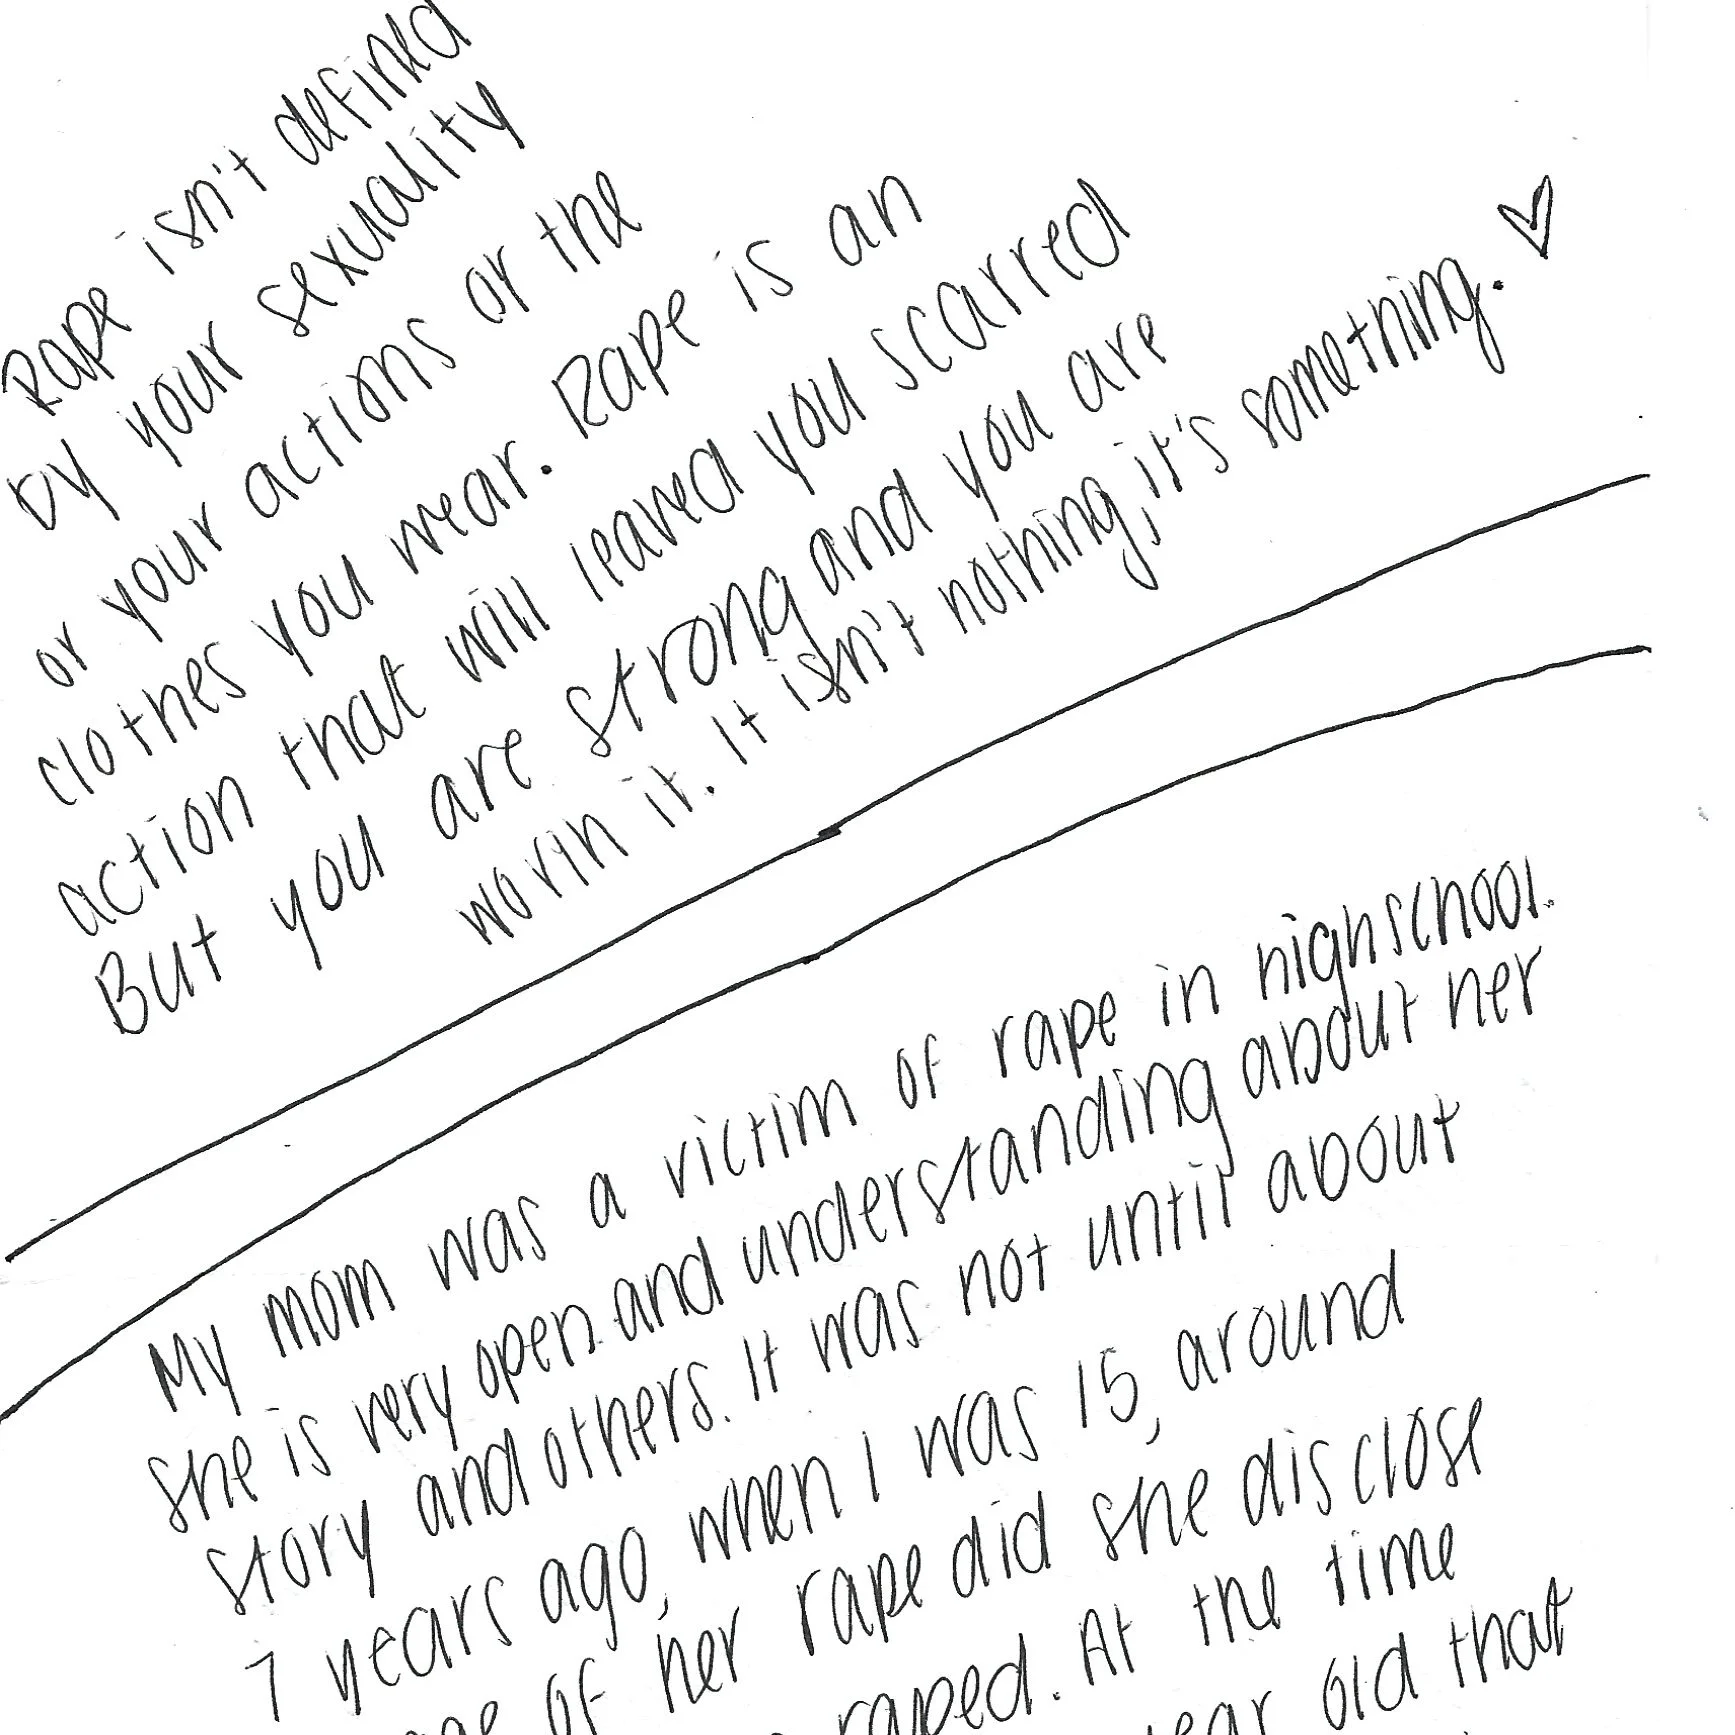 Rape isn't defined
by your sexuality
or your actions or the
clothes you wear. Rape is an
action that will leaved you scarred
But you are strong and you are
worth it. It isn't nothing, it's something. ♡
My mom was a victim of rape in highschool.
She is very open and understanding about her
story and others. It was not until about
7 years ago, when I was 15, around
of her rape did she disclose
raped. At the time
old that